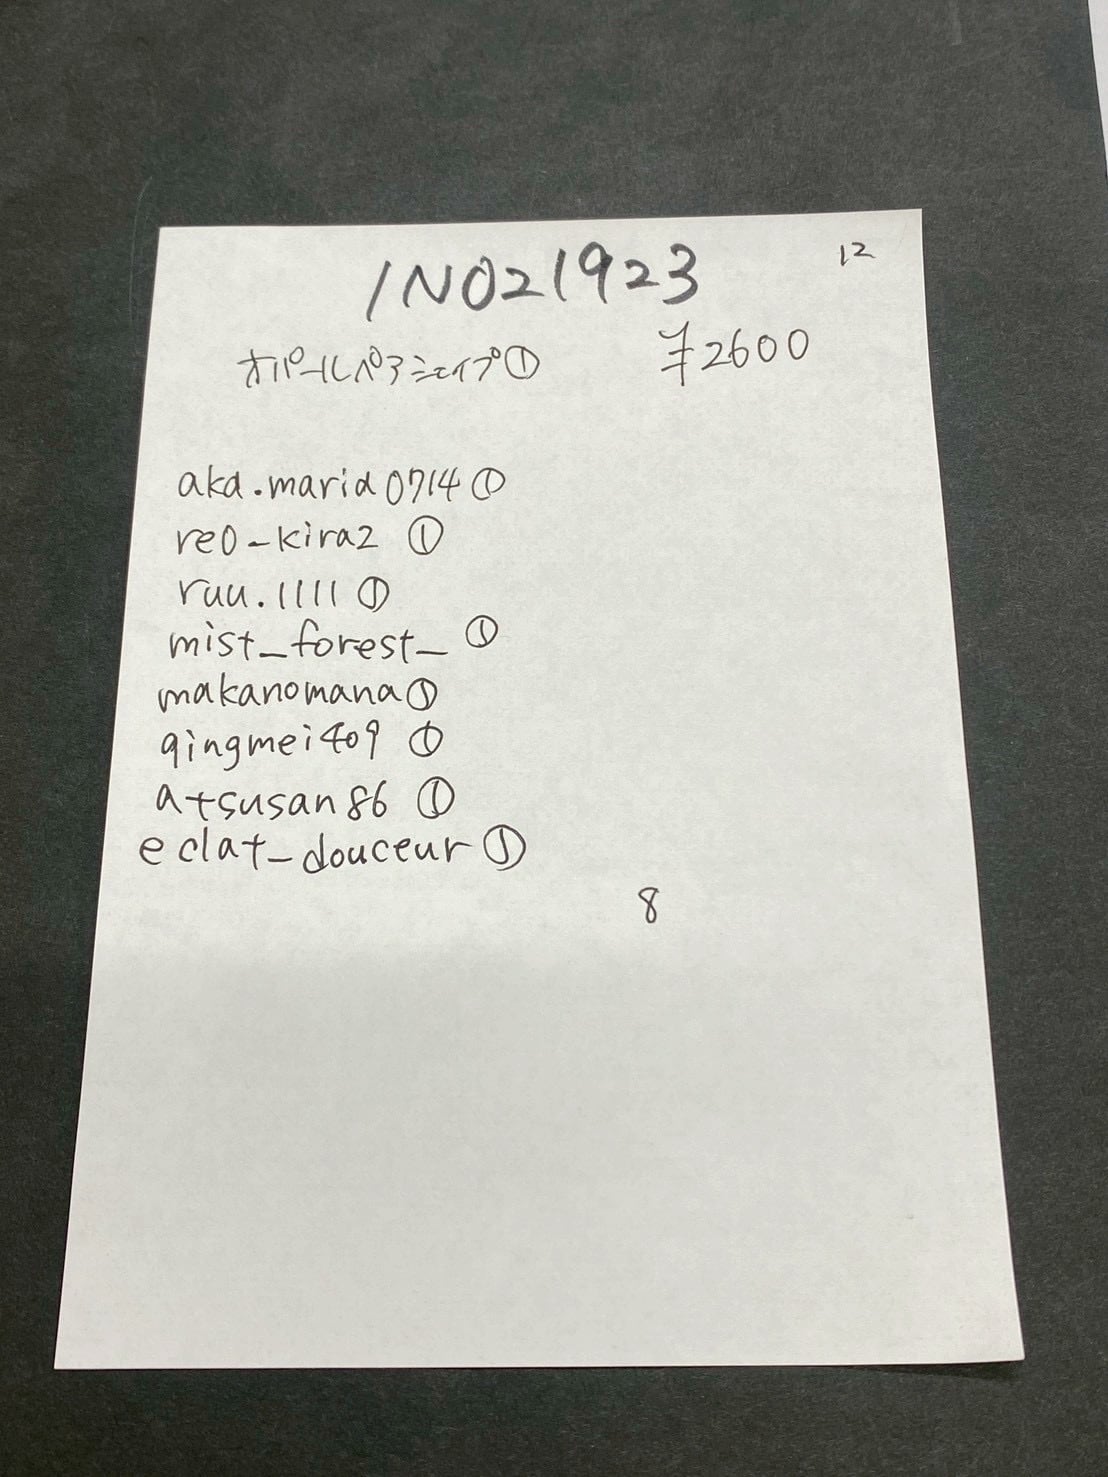 12
INO21923
オパールペアシェイプ① ¥2600
aka.maria0714①
reo_kira2 ①
ruu.1111①
mist_forest_ ①
makanomana①
qingmei409 ①
atsusan86 ①
eclat_douceur①
8